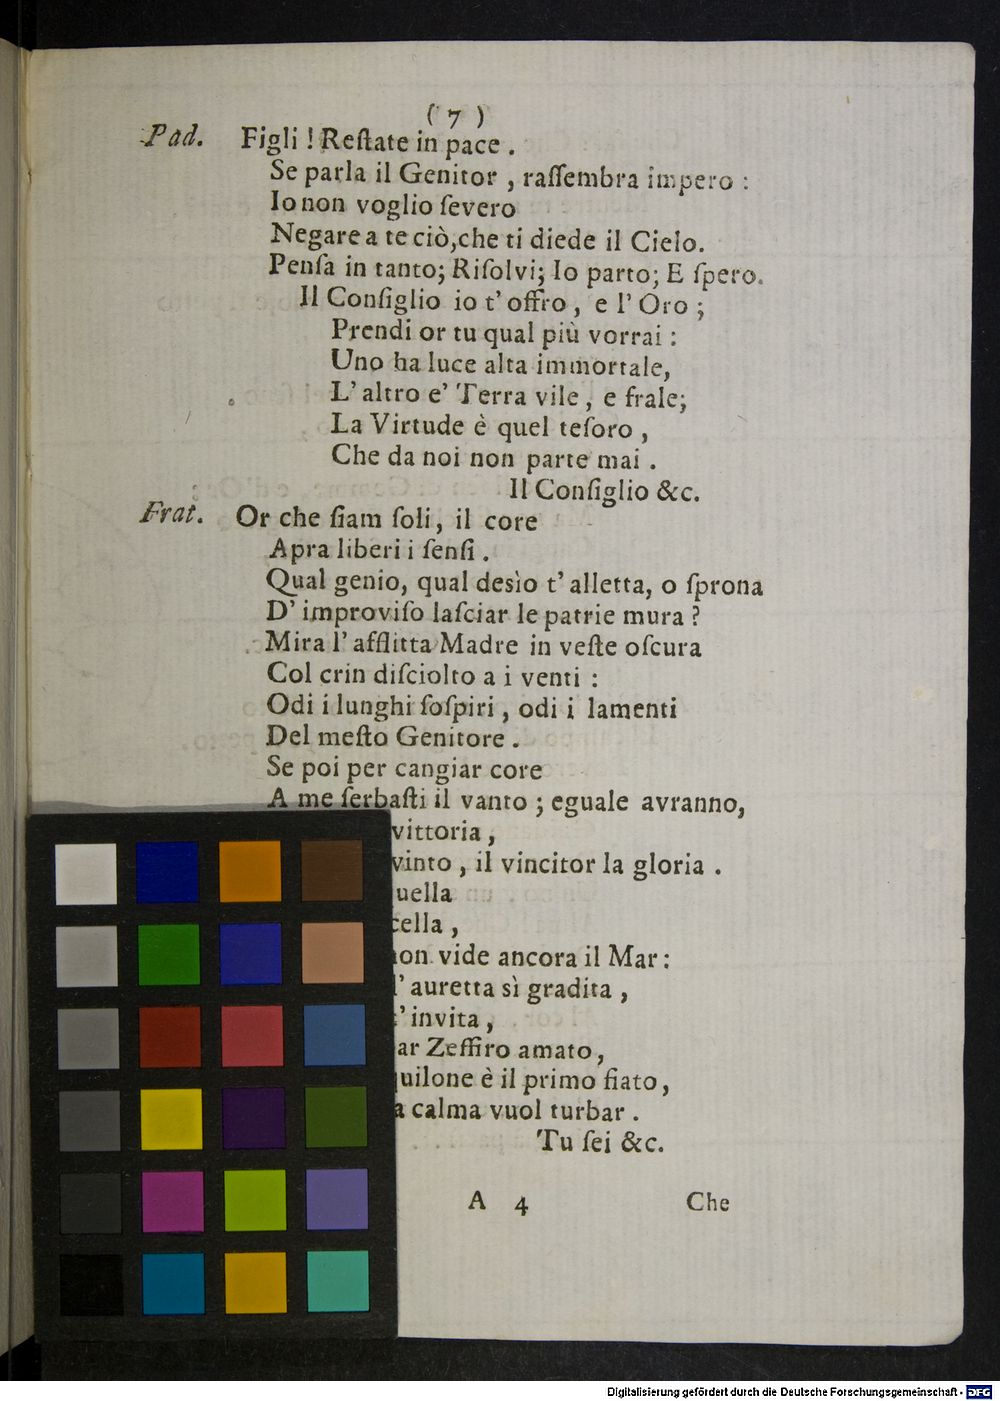 ( 7 )
Pad. Figli ! Reſtate in pace .
Se parla il Genitor , raſſembra impero :
Io non voglio ſevero
Negare a te ciò,che ti diede il Cielo.
Penſa in tanto; Riſolvi; Io parto; E ſpero.
Il Conſiglio io t' offro , e l' Oro ;
Prendi or tu qual più vorrai :
Uno ha luce alta immortale,
L' altro e' Terra vile , e frale;
La Virtude è quel teſoro ,
Che da noi non parte mai .
Il Conſiglio &c.
Frat. Or che ſiam ſoli, il core
Apra liberi i ſenſi .
Qual genio, qual desìo t' alletta, o ſprona
D' improviſo laſciar le patrie mura ?
Mira l' afflitta Madre in veſte oſcura
Col crin diſciolto a i venti :
Odi i lunghi ſoſpiri , odi i lamenti
Del meſto Genitore .
Se poi per cangiar core
A me ſerbaſti il vanto ; eguale avranno,
vittoria ,
vinto , il vincitor la gloria .
uella
cella ,
non vide ancora il Mar :
l' auretta sì gradita ,
t' invita ,
ar Zeffiro amato ,
quilone è il primo fiato ,
a calma vuol turbar .
Tu ſei &c.
A 4 Che
Digitalisierung gefördert durch die Deutsche Forschungsgemeinschaft - DFG